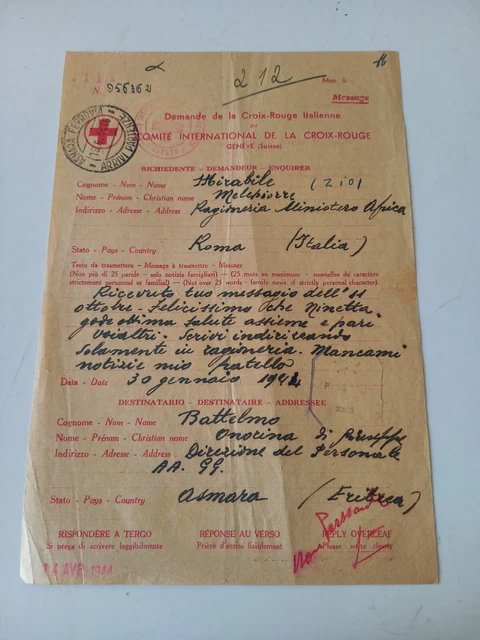 N. 956362
212
Mod. S.
Message
Demande de la Croix-Rouge Italienne
au
COMITÉ INTERNATIONAL DE LA CROIX-ROUGE
GENÈVE (Suisse)
RICHIEDENTE - DEMANDEUR - ENQUIRER
Cognome - Nom - Name Mirabile (zio)
Nome - Prénom - Christian name Melchiorre
Indirizzo - Adresse - Address Ragioneria Ministero Africa
Stato - Pays - Country Roma (Italia)
Testo da trasmettere - Message à trasmettre - Message
(Non più di 25 parole - solo notizie famigliari) - (25 mots au maximum - nouvelles de caractère
strictement personnel et familial) - (Not over 25 words - family news of strictly personal character).
Ricevuto tuo messaggio dell'11
ottobre - Felicissimo che Ninetta
gode ottima salute assieme a pari
voialtri - Scrivi indirizzando
Solamente in ragioneria - Mancami
notizie mio fratello
Data - Date 30 gennaio 1944
DESTINATARIO - DESTINATAIRE - ADDRESSEE
Cognome - Nom - Name Battelmo
Nome - Prénom - Christian name di Giuseppe
Indirizzo - Adresse - Address Direzione del Personale
AA. GG.
Stato - Pays - Country Asmara (Eritrea)
RISPONDERE A TERGO RÉPONSE AU VERSO REPLY OVERLEAF
Si prega di scrivere leggibilmente Prière d'écrire lisiblement Please write clearly
14 AVR 1944